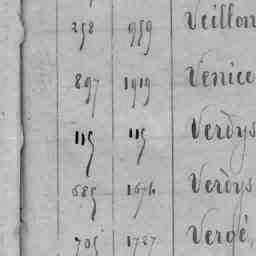 258 959 Veillon
897 1919 Venice
115 115 Verdys
685 1674 Verdys
705 1727 Vergé,